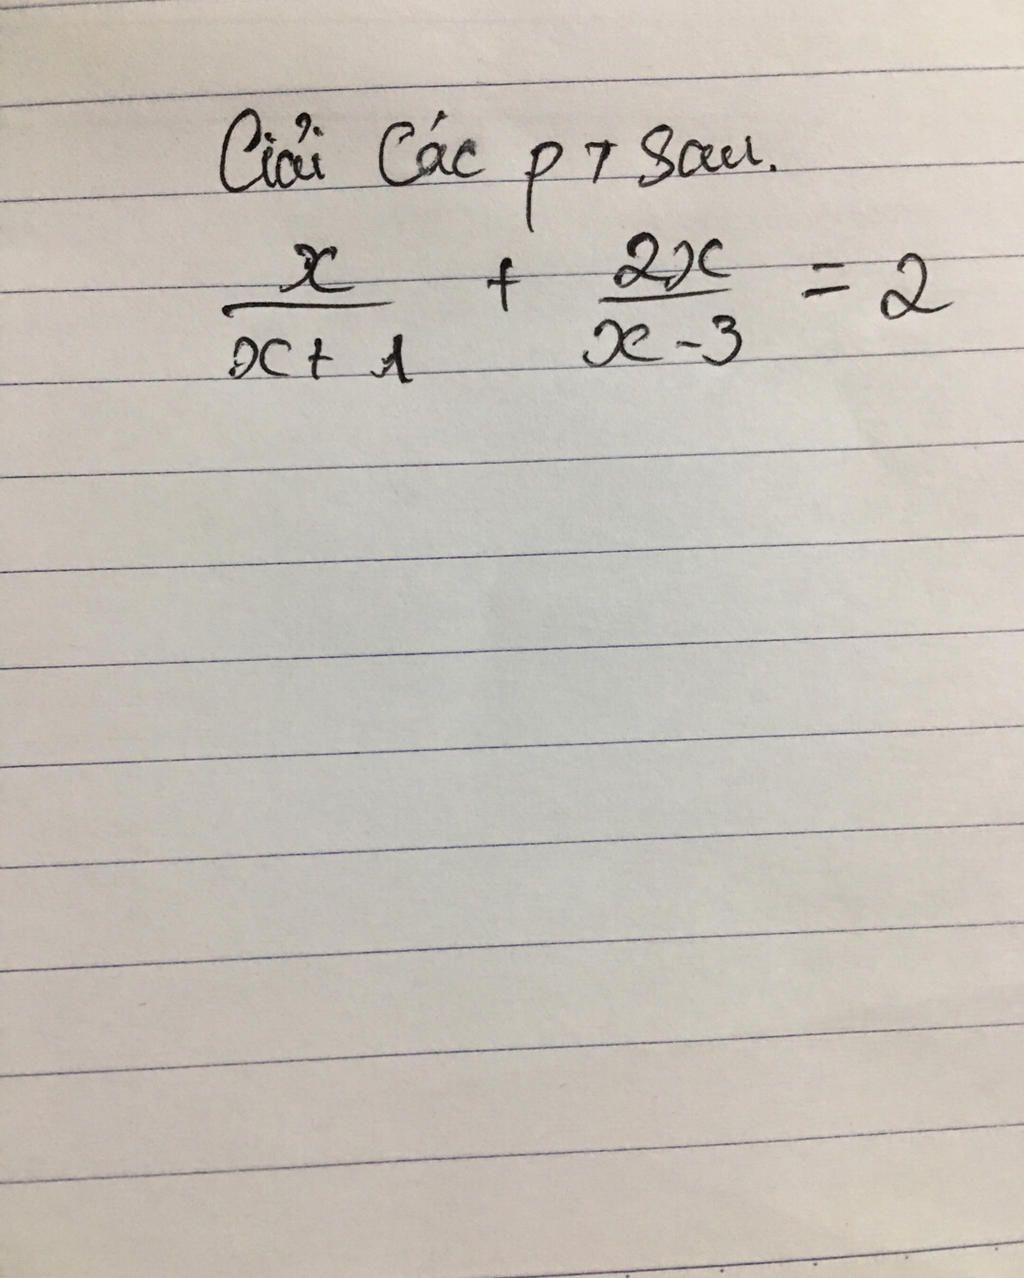 Giải Các pT sau.
x/(x+1) + 2x/(x-3) = 2